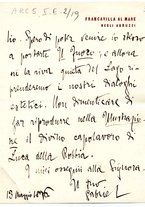 ARC. 5. I. E. 2/19
FRANCAVILLA AL MARE
NEGLI ABRUZZI
lio. Spero di poter venire io stesso
a portarte Il Fuoco; e allora
ne la riva quieta del Lago ri-
prenderemo i nostri dialoghi
estetici. Non dimenticare di
far riprodurre nella Illustrazio-
ne il divino capolavoro di
Luca della Robbia.
I miei omaggi alla Signora
Il tuo
Gabriele
13 maggio